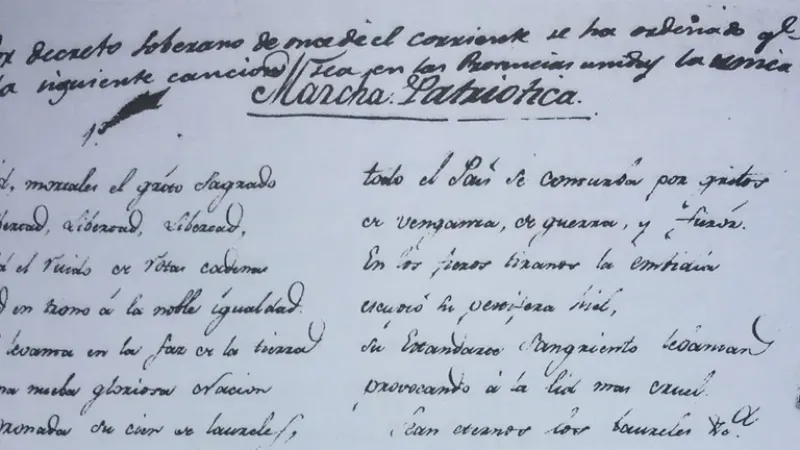 or decreto Soberano de once del corriente se ha ordenado qe
la siguiente cancion Sea en las Provincias unidas la unica
Marcha Patriotica.
1ª
d, mortales el grito Sagrado
bertad, Libertad, Libertad,
d el ruido de rotas cadenas
d en trono á la noble igualdad.
levanta en la faz de la tierra
na nueba gloriosa Nacion
oronada su cien de laureles,
todo el Pais se conturba por gritos
de venganza, de guerra, y furór.
En los fieros tiranos la embidia
escupió su pestifera hiel,
Su Estandarte Sangriento levantan
provocando á la lid mas cruel.
Sean eternos los Laureles &ª.